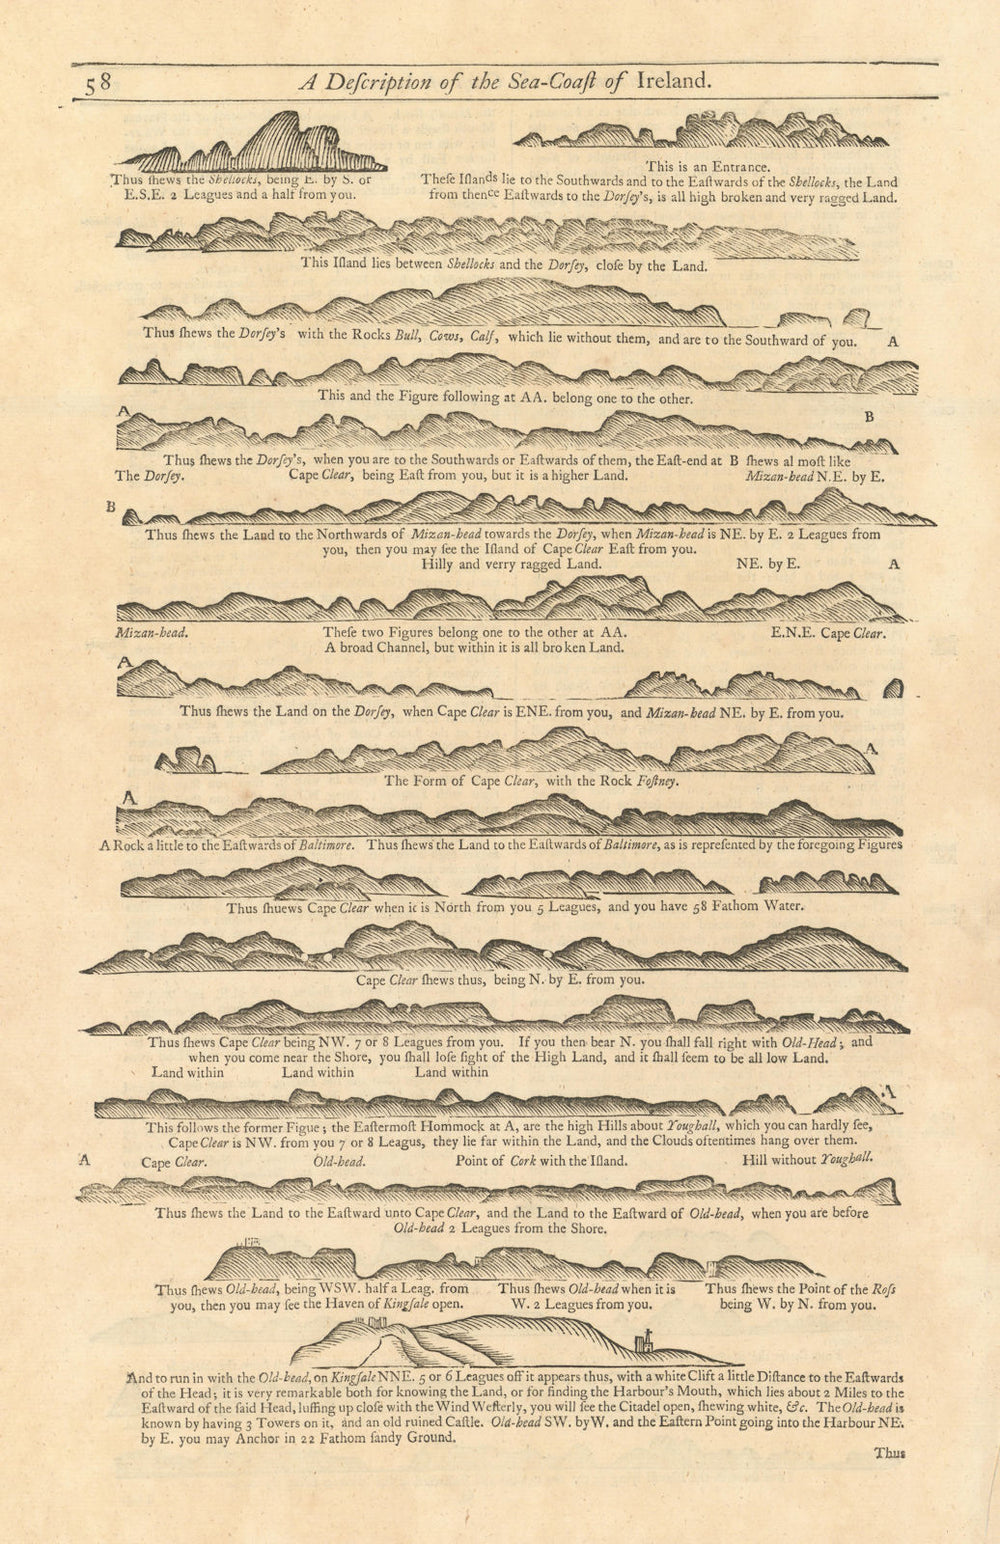 58
A Deſcription of the Sea-Coaſt of Ireland.
Thus ſhews the Shellocks, being E. by S. or
E.S.E. 2 Leagues and a half from you.
This is an Entrance.
Theſe Iſlands lie to the Southwards and to the Eaſtwards of the Shellocks, the Land
from thence Eaſtwards to the Dorſey's, is all high broken and very ragged Land.
This Iſland lies between Shellocks and the Dorſey, cloſe by the Land.
Thus ſhews the Dorſey's with the Rocks Bull, Cows, Calf, which lie without them, and are to the Southward of you. A
This and the Figure following at AA. belong one to the other.
A B
Thus ſhews the Dorſey's, when you are to the Southwards or Eaſtwards of them, the Eaſt-end at B ſhews al moſt like
The Dorſey. Cape Clear, being Eaſt from you, but it is a higher Land. Mizan-head N.E. by E.
B
Thus ſhews the Land to the Northwards of Mizan-head towards the Dorſey, when Mizan-head is NE. by E. 2 Leagues from
you, then you may ſee the Iſland of Cape Clear Eaſt from you.
Hilly and verry ragged Land. NE. by E. A
Mizan-head. Theſe two Figures belong one to the other at AA. E.N.E. Cape Clear.
A broad Channel, but within it is all bro ken Land.
A
Thus ſhews the Land on the Dorſey, when Cape Clear is ENE. from you, and Mizan-head NE. by E. from you.
A
The Form of Cape Clear, with the Rock Foſtney.
A
A Rock a little to the Eaſtwards of Baltimore. Thus ſhews the Land to the Eaſtwards of Baltimore, as is repreſented by the foregoing Figures
Thus ſhuews Cape Clear when it is North from you 5 Leagues, and you have 58 Fathom Water.
Cape Clear ſhews thus, being N. by E. from you.
Thus ſhews Cape Clear being NW. 7 or 8 Leagues from you. If you then bear N. you ſhall fall right with Old-Head; and
when you come near the Shore, you ſhall loſe ſight of the High Land, and it ſhall ſeem to be all low Land.
Land within Land within Land within
A
This follows the former Figue; the Eaſtermoſt Hommock at A, are the high Hills about Youghall, which you can hardly ſee,
Cape Clear is NW. from you 7 or 8 Leagus, they lie far within the Land, and the Clouds oftentimes hang over them.
A Cape Clear. Old-head. Point of Cork with the Iſland. Hill without Youghall.
Thus ſhews the Land to the Eaſtward unto Cape Clear, and the Land to the Eaſtward of Old-head, when you are before
Old-head 2 Leagues from the Shore.
Thus ſhews Old-head, being WSW. half a Leag. from
you, then you may ſee the Haven of Kingſale open.
Thus ſhews Old-head when it is
W. 2 Leagues from you.
Thus ſhews the Point of the Roſs
being W. by N. from you.
And to run in with the Old-head, on Kingſale NNE. 5 or 6 Leagues off it appears thus, with a white Clift a little Diſtance to the Eaſtwards
of the Head; it is very remarkable both for knowing the Land, or for finding the Harbour's Mouth, which lies about 2 Miles to the
Eaſtward of the ſaid Head, luffing up cloſe with the Wind Weſterly, you will ſee the Citadel open, ſhewing white, &c. The Old-head is
known by having 3 Towers on it, and an old ruined Caſtle. Old-head SW. by W. and the Eaſtern Point going into the Harbour NE.
by E. you may Anchor in 22 Fathom ſandy Ground.
Thus